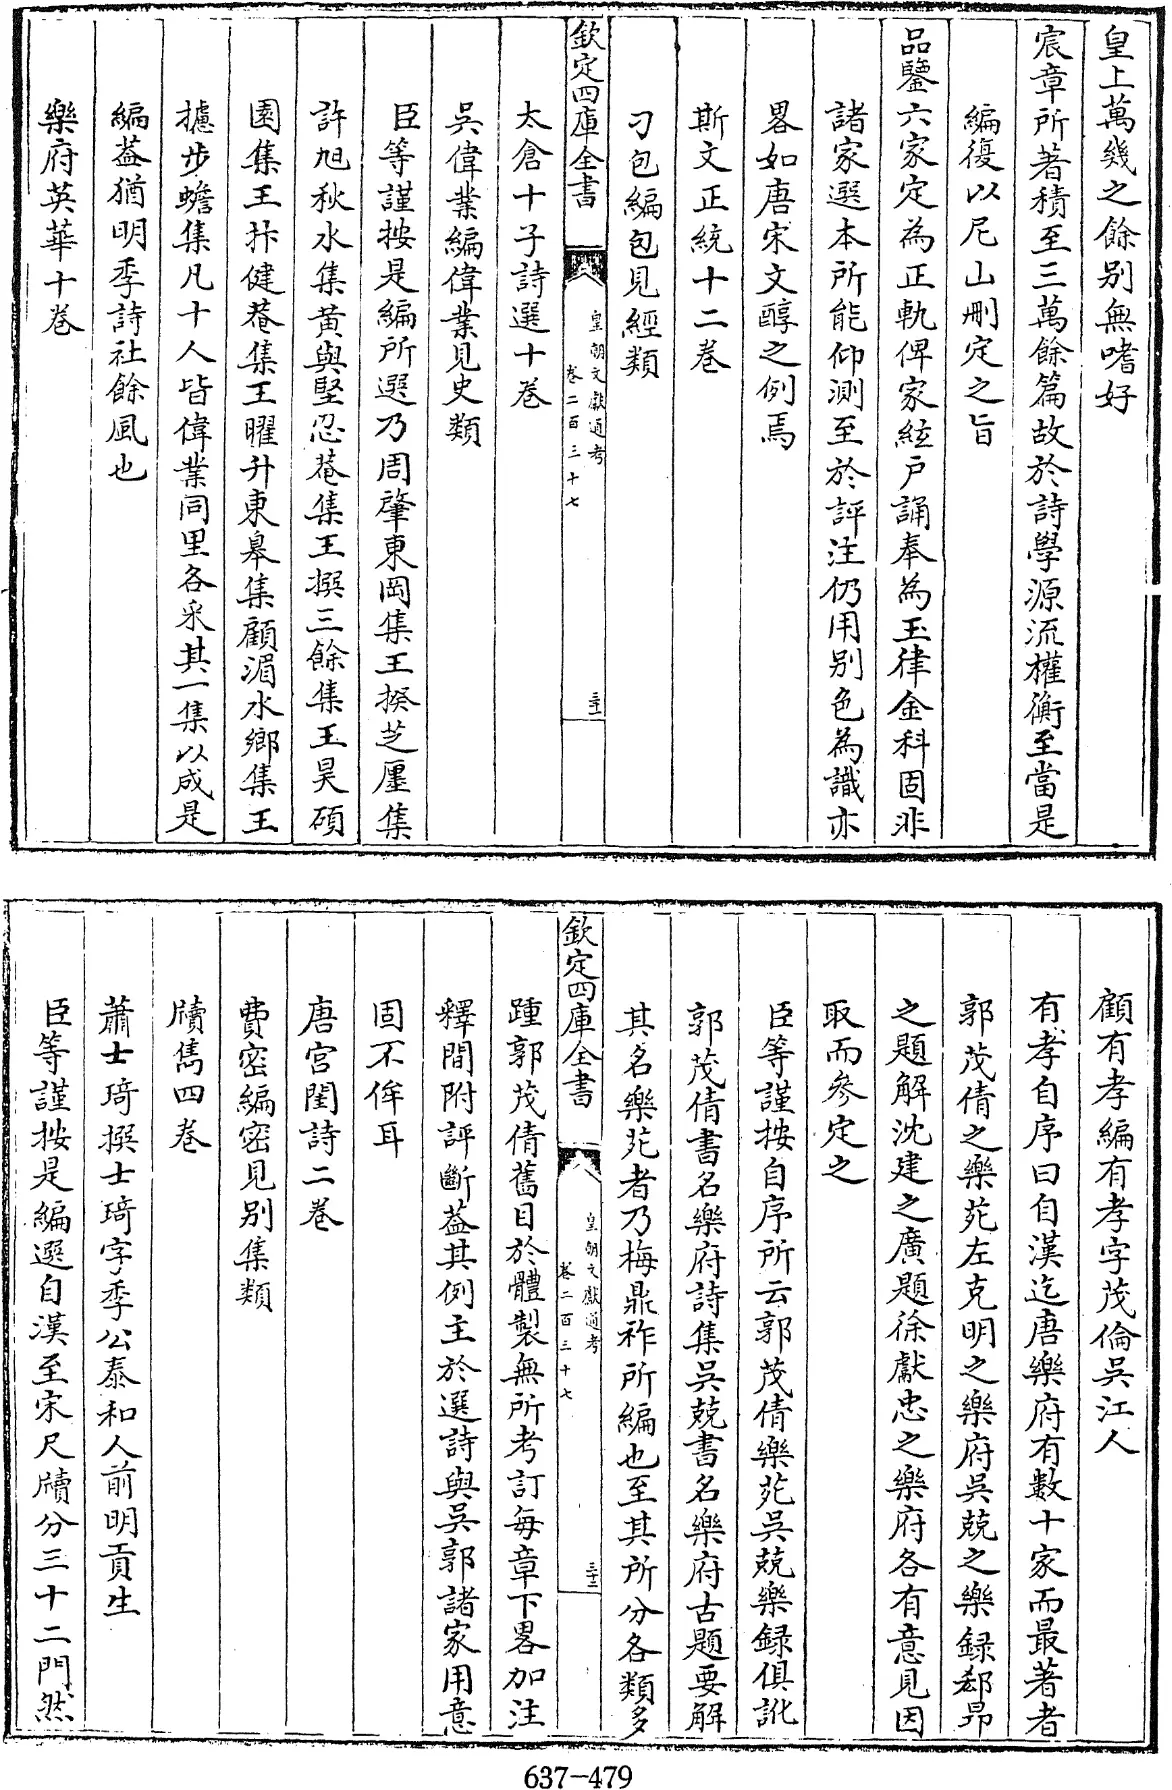 皇上萬幾之餘别無嗜好
宸章所著積至三萬餘篇故於詩學源流權衡至當是
編復以尼山刪定之旨
品鑒六家定為正軌俾家絃户誦奉為玉律金科固非
諸家選本所能仰測至於評注仍用别色為識亦
畧如唐宋文醇之例焉
斯文正統十二巻
刁包編包見經類
欽定四庫全書
皇朝文獻通考
卷二百三十七
三十一
太倉十子詩選十巻
吳偉業編偉業見史類
臣等謹按是編所選乃周肇東岡集王揆芝廛集
許旭秋水集黄與堅忍菴集王撰三餘集王昊碩
園集王抃健菴集王曜升東皋集顧湄水鄉集王
攄步蟾集凡十人皆偉業同里各采其一集以成是
編葢猶明季詩社餘風也
樂府英華十巻
顧有孝編有孝字茂倫吳江人
有孝自序曰自漢迄唐樂府有數十家而最著者
郭茂倩之樂苑左克明之樂府吳兢之樂録郄昻
之題解沈建之廣題徐獻忠之樂府各有意見因
取而叅定之
臣等謹按自序所云郭茂倩樂苑吳兢樂録俱訛
郭茂倩書名樂府詩集吳兢書名樂府古題要解
其名樂苑者乃梅鼎祚所編也至其所分各類多
欽定四庫全書
皇朝文獻通考
卷二百三十七
三十二
踵郭茂倩舊目於體製無所考訂每章下畧加注
釋間附評斷葢其例主於選詩與吳郭諸家用意
固不侔耳
唐宫閨詩二巻
費密編密見别集類
牘雋四巻
蕭士琦撰士琦字季公泰和人前明貢生
臣等謹按是編選自漢至宋尺牘分三十二門然
637-479